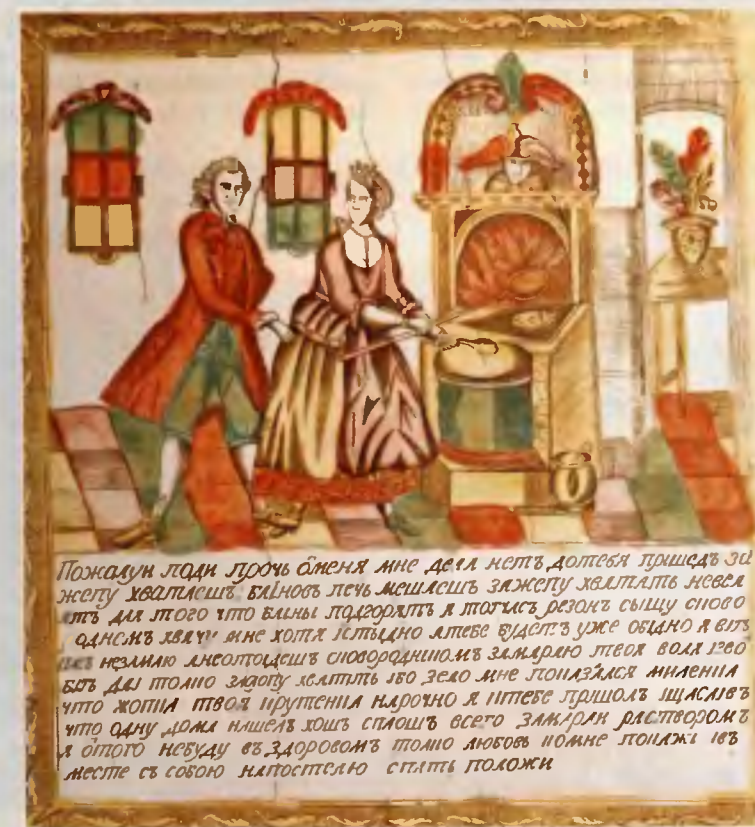 Пожалуи поди прочь ѿменя мне дела нетъ дотебя пришедъ за
жепу хватаешъ блиновъ печь мешаешъ зажепу хватать невел
ятъ для того что блины подгорятъ я тотчасъ резонъ сыщу сково
однемъ хвачу мне хотя истыдно атебе будетъ уже обидно я ветъ
незамаю анеотоидешъ сковородникомъ замараю твоя воля изво
бить даи толко зажопу хватить ибо зело мне показался миленка
что жопка твоя крутенка нарочно я ктебе пришолъ щаслив
что одну дома нашелъ хошъ сплошъ всего замараи растворомъ
я ѿтого небуду въздоровомъ толко любовь комне покажи ив
месте съ собою напостелю спать положи